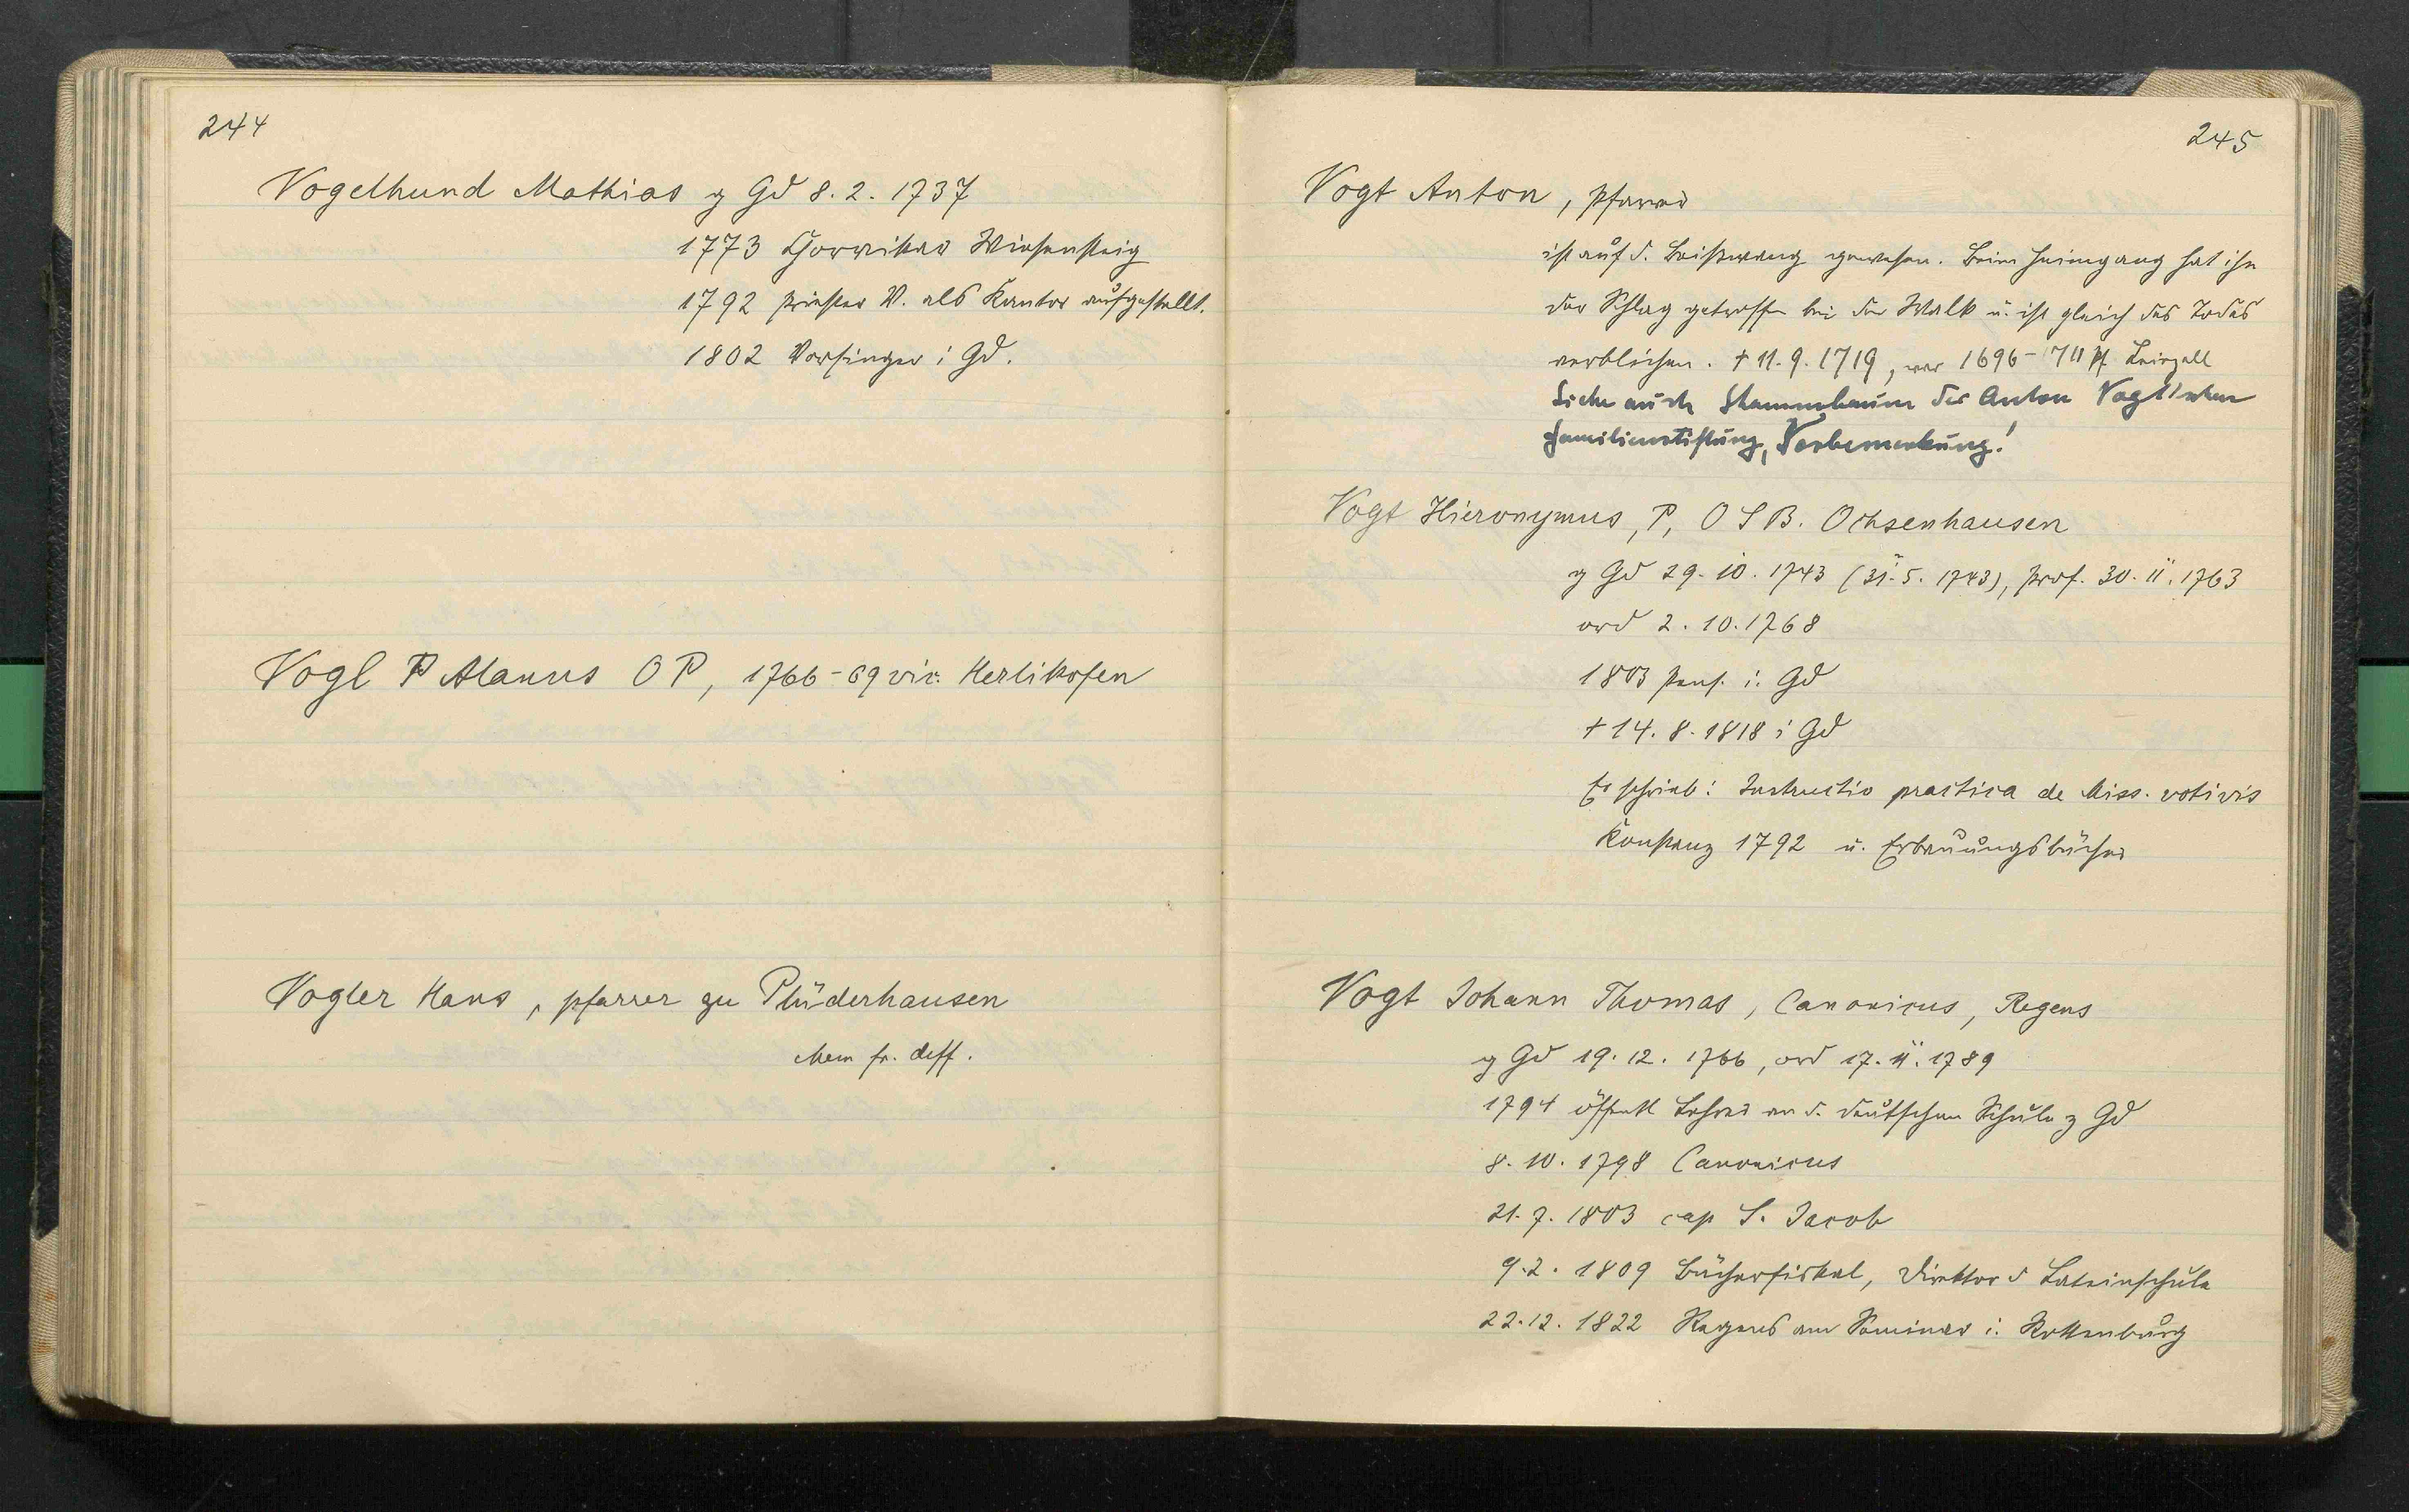 244
Vogelhund Mathias g Gd 8. 2. 1737
1773 Chorvikar Wiesensteig
1792 priester V. als Kantor aufgestellt.
1802 Vorsinger i Gd.
Vogl P Alanus O P, 1766-69 vic. Herlikofen
Vogler Hans, pfarrer zu Plüderhausen
Mem fr. deff.
245
Vogt Anton, Pfarrer
ist auf d. Beiswang gewesen. Beim Heimgang hat ihn
der Schlag getroffen bei der Walk u. ist gleich des Todes
verblichen. † 11. 9. 1719, war 1696-1711 Pf. Leinzell
Siehe auch Stammbaum der Anton Vogt'schen
Familienstiftung, Vorbemerkung!
Vogt Hieronymus, P, O S B. Ochsenhausen
g Gd 29. 10. 1743 (31. 5. 1743), prof. 30. 11. 1763
ord 2. 10. 1768
1803 pens. i. Gd
† 14. 8. 1818 i Gd
Er schrieb: Instructio practica de Miss. votivis
Konstanz 1792 u. Erbauungsbücher
Vogt Johann Thomas, Canonicus, Regens
g Gd 19. 12. 1766, ord 17. 11. 1789
1794 öffentl Lehrer an d. deutschen Schule z Gd
8. 10. 1798 Canonicus
21. 7. 1803 cap S. Jacob
9. 2. 1809 Bücherfiskal, Direktor d Lateinschule
22. 12. 1822 Regens am Seminar i. Rottenburg